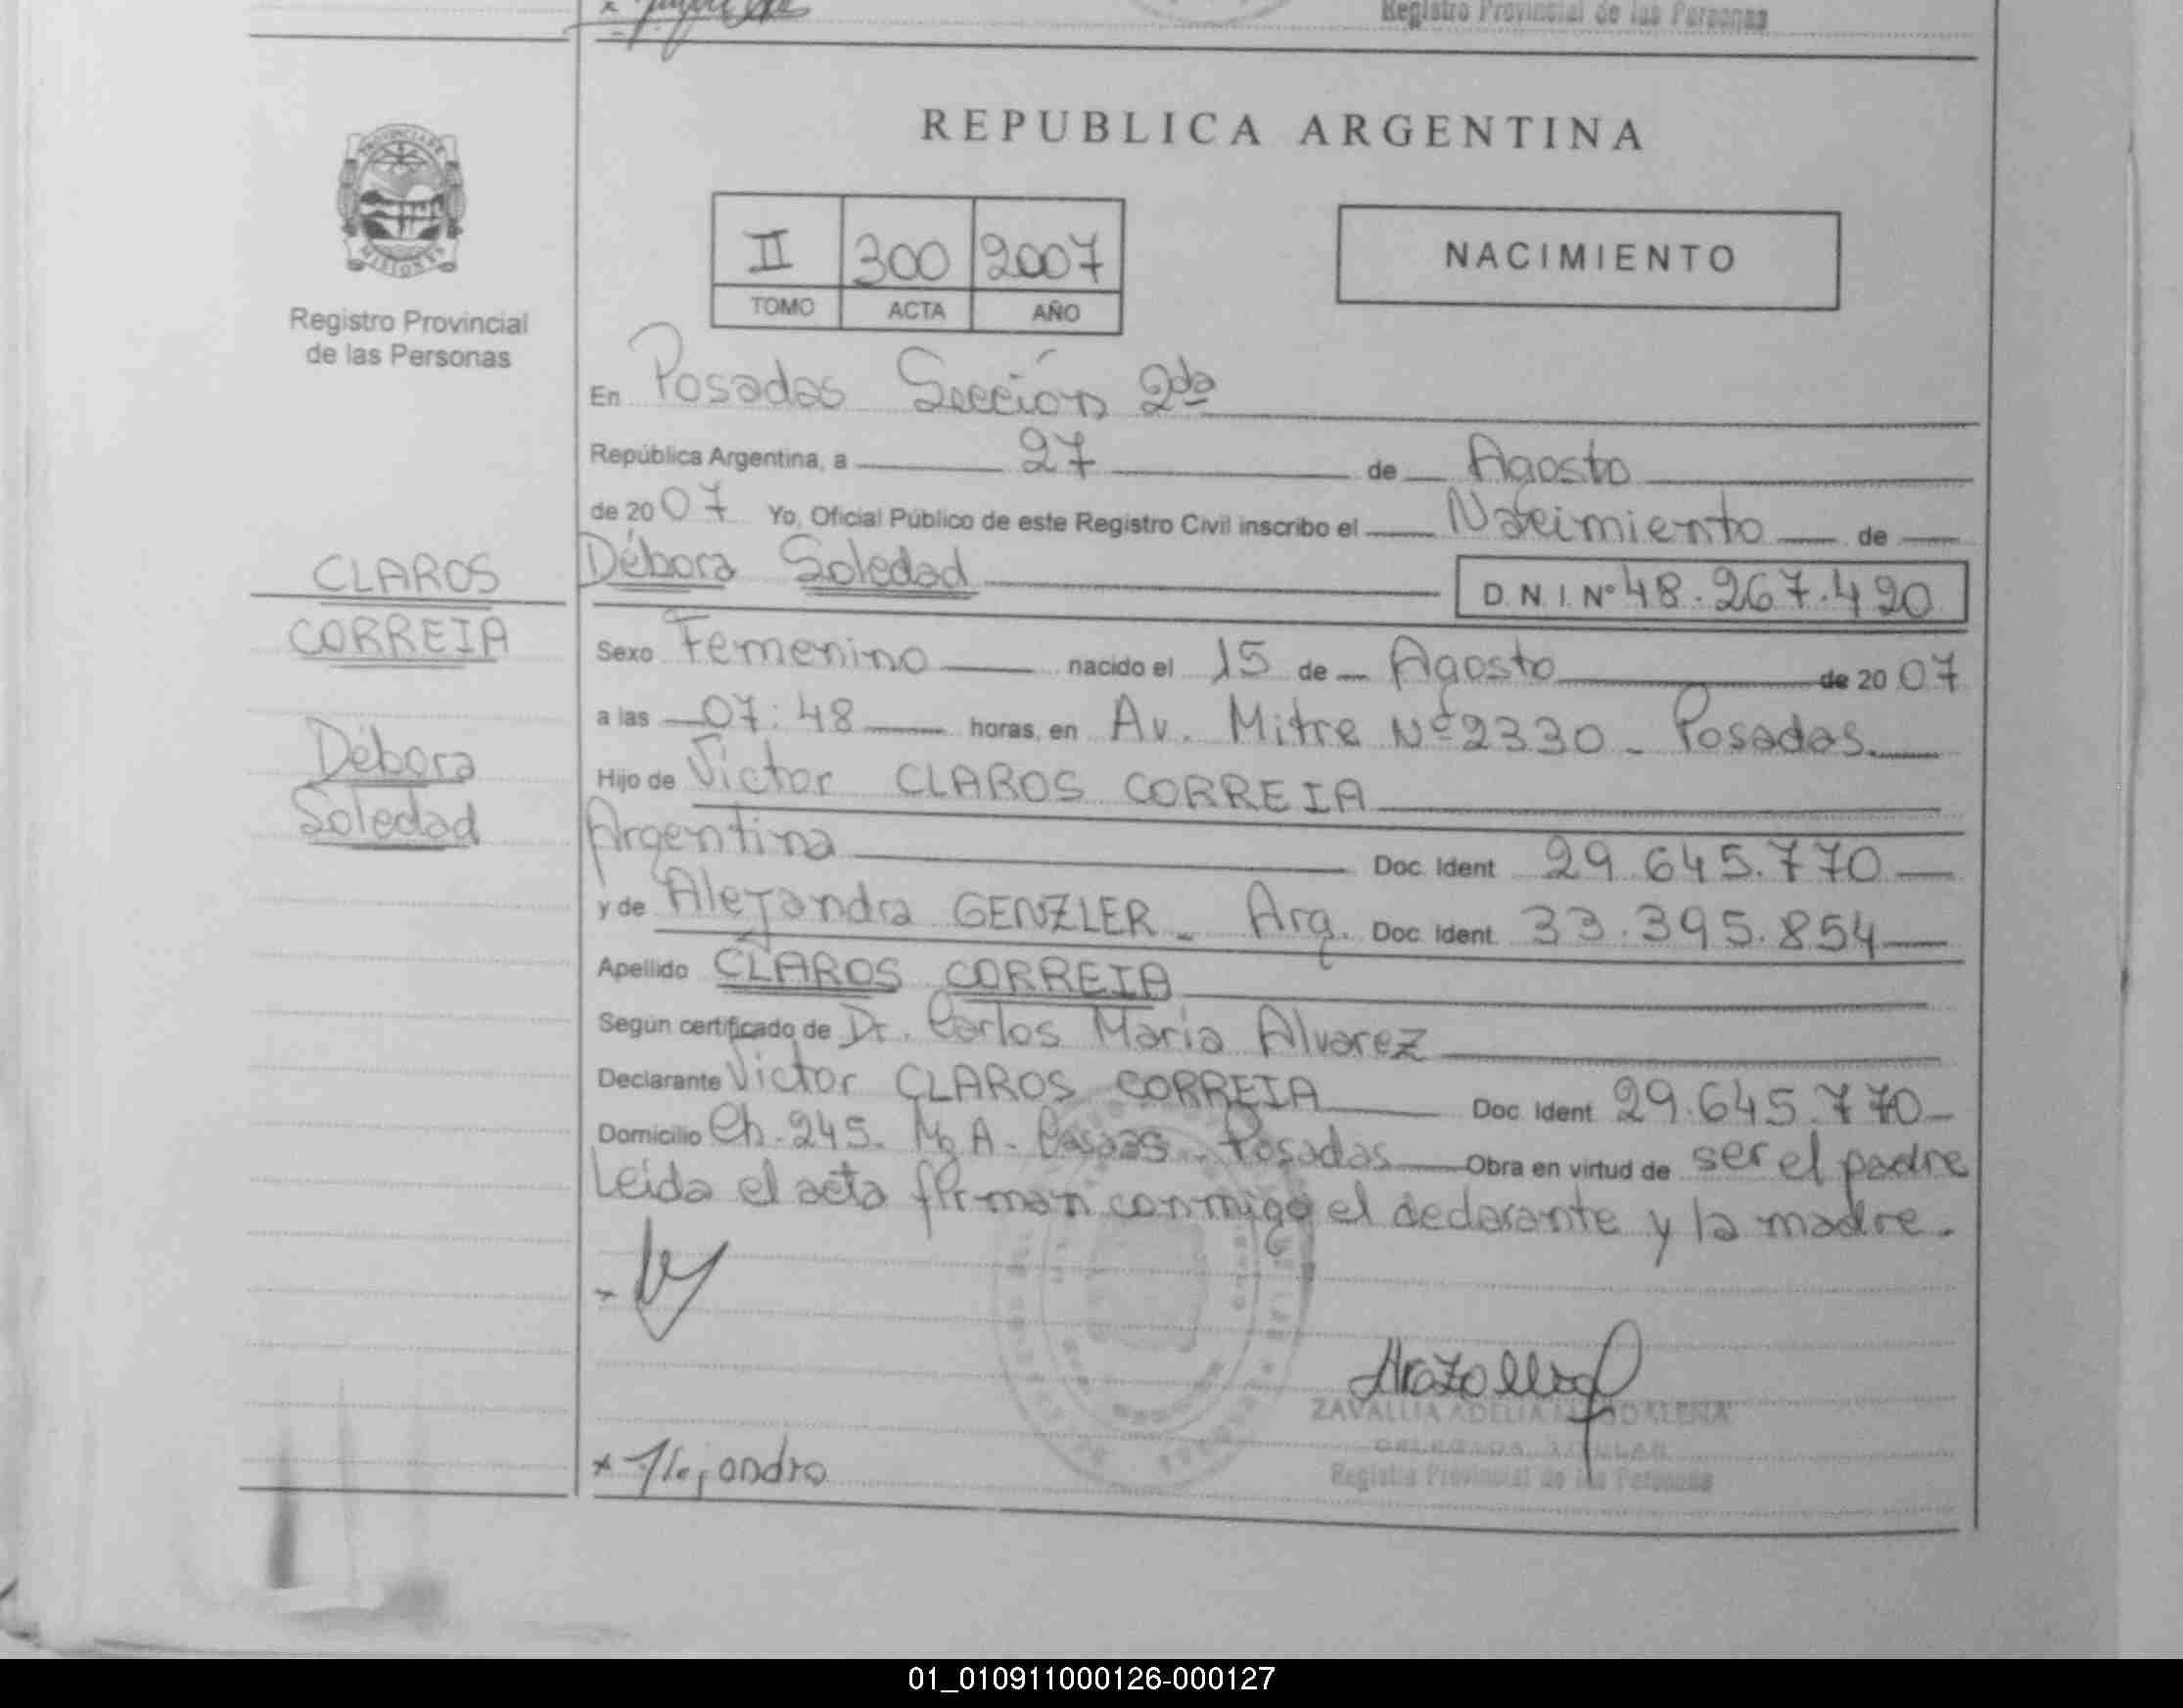 Registro Provincial de las Personas
PROVINCIA DE
MISIONES
Registro Provincial
de las Personas
REPUBLICA ARGENTINA
II 300 2007
TOMO ACTA AÑO
NACIMIENTO
En Posadas Sección 2da
República Argentina, a 27 de Agosto
de 2007 Yo, Oficial Público de este Registro Civil inscribo el Nacimiento de
Débora Soledad D.N.I. Nº 48.267.490
CLAROS
CORREIA
Débora
Soledad
Sexo Femenino nacido el 15 de Agosto de 2007
a las 07:48 horas, en Av. Mitre Nº 2330 - Posadas.
Hijo de Victor CLAROS CORREIA
Argentina Doc. Ident. 29.645.770
y de Alejandra GENZLER - Arg. Doc. Ident. 33.395.854
Apellido CLAROS CORREIA
Según certificado de Dr. Carlos Maria Alvarez
Declarante Victor CLAROS CORREIA Doc. Ident. 29.645.770
Domicilio Ch. 245. Mz A - Posadas Obra en virtud de ser el padre
Leida el acta firman conmigo el declarante y la madre.
ZAVALLIA ADELIA
DELEGADA TITULAR
Registro Provincial de las Personas
x Alejandra
01_010911000126-000127